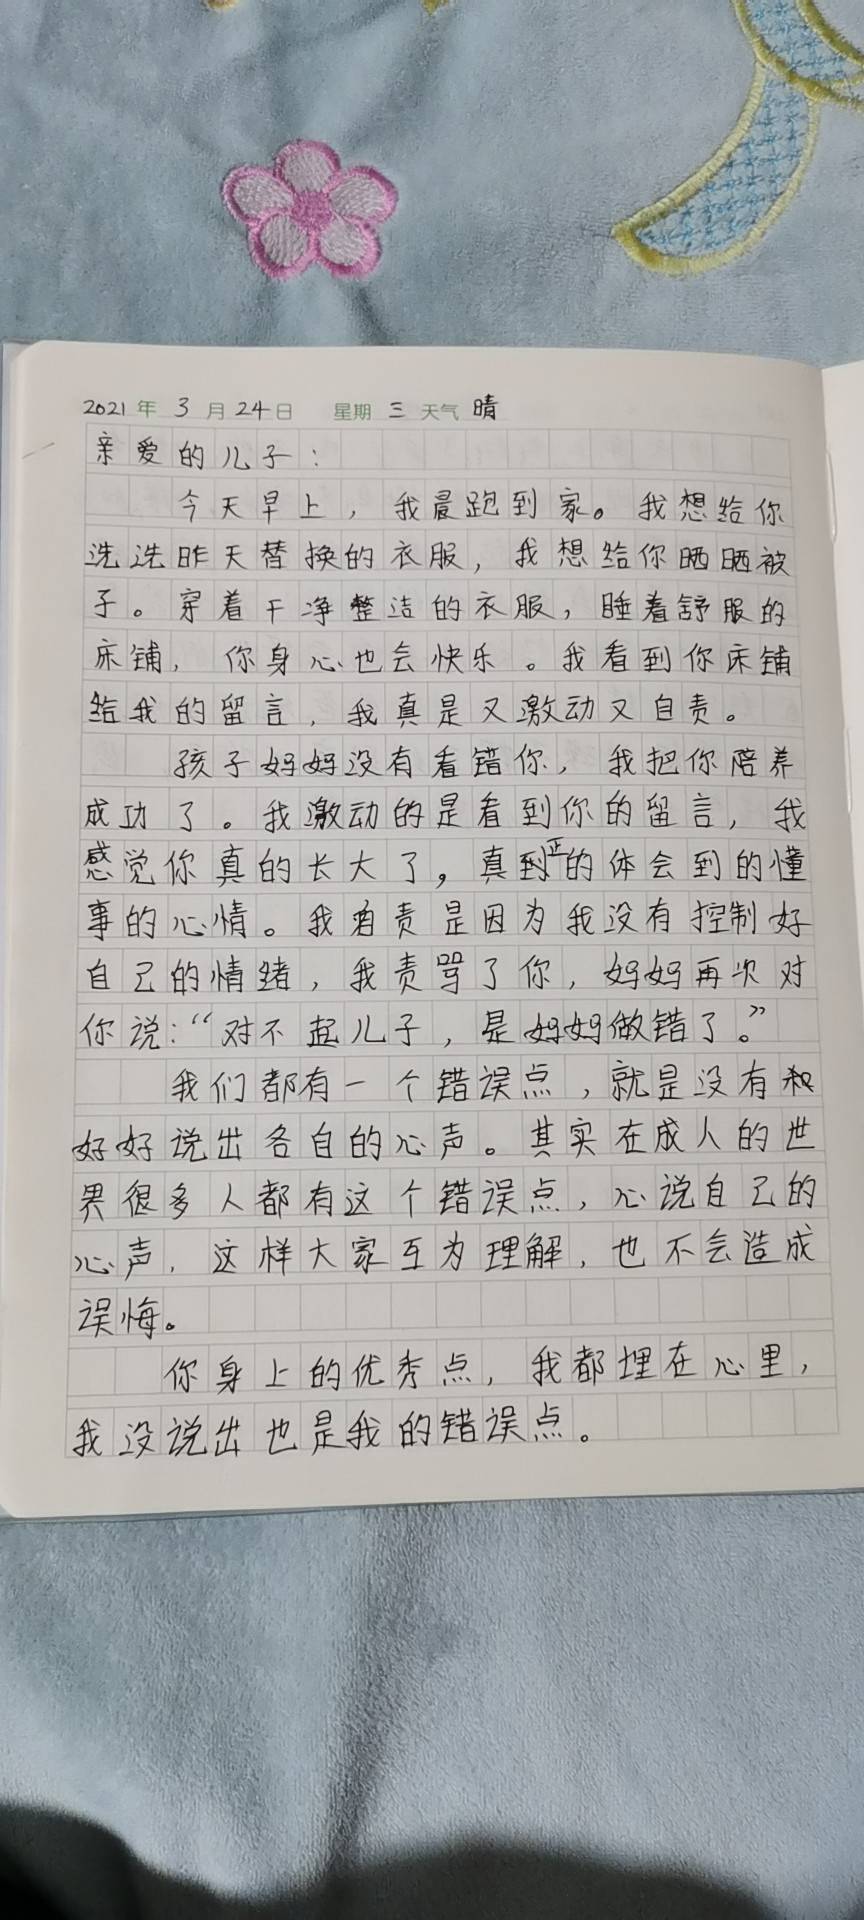 2021年 3月24日 星期三 天气 晴
亲爱的儿子：
今天早上，我晨跑到家。我想给你
洗洗昨天替换的衣服，我想给你晒晒被
子。穿着干净整洁的衣服，睡着舒服的
床铺，你身心也会快乐。我看到你床铺
给我的留言，我真是又激动又自责。
孩子妈妈没有看错你，我把你陪养
成功了。我激动的是看到你的留言，我
感觉你真的长大了，真正的体会到的懂
事的心情。我自责是因为我没有控制好
自己的情绪，我责骂了你，妈妈再次对
你说：“对不起儿子，是妈妈做错了。”
我们都有一个错误点，就是没有
好好说出各自的心声。其实在成人的世
界很多人都有这个错误点，心说自己的
心声，这样大家互为理解，也不会造成
误悔。
你身上的优秀点，我都埋在心里，
我没说出也是我的错误点。